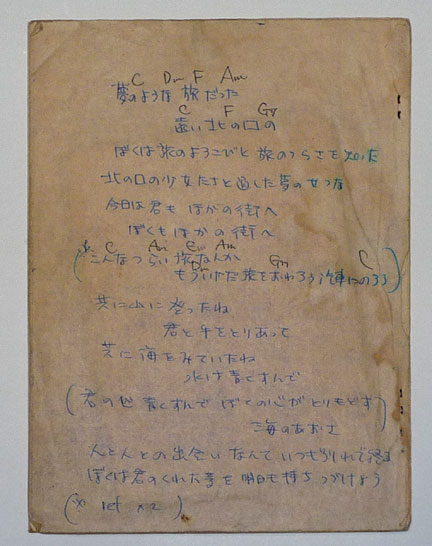 C Dm F Am
夢のような旅だった
C F G7
遠い北の口の
ぼくは旅のよろこびと 旅のつらさを知った
北の口の少女たちと過した夢の
今日は君も ほかの街へ
ぼくもほかの街へ
C Am Em Am
(※ こんなつらい旅なんか
Dm G7 C
もういやだ旅をおわろう汽車にのろう)
共に山に登ったね
君と手をとりあって
共に海をみていたね
水は青くすんで
(君の色 青くすんで ぼくの心がとりもどす)
海のあおさ
人と人との出会いなんていつも別れで終る
ぼくは君のくれた夢を明日も持ちつづけよう
(※ ref ×2)